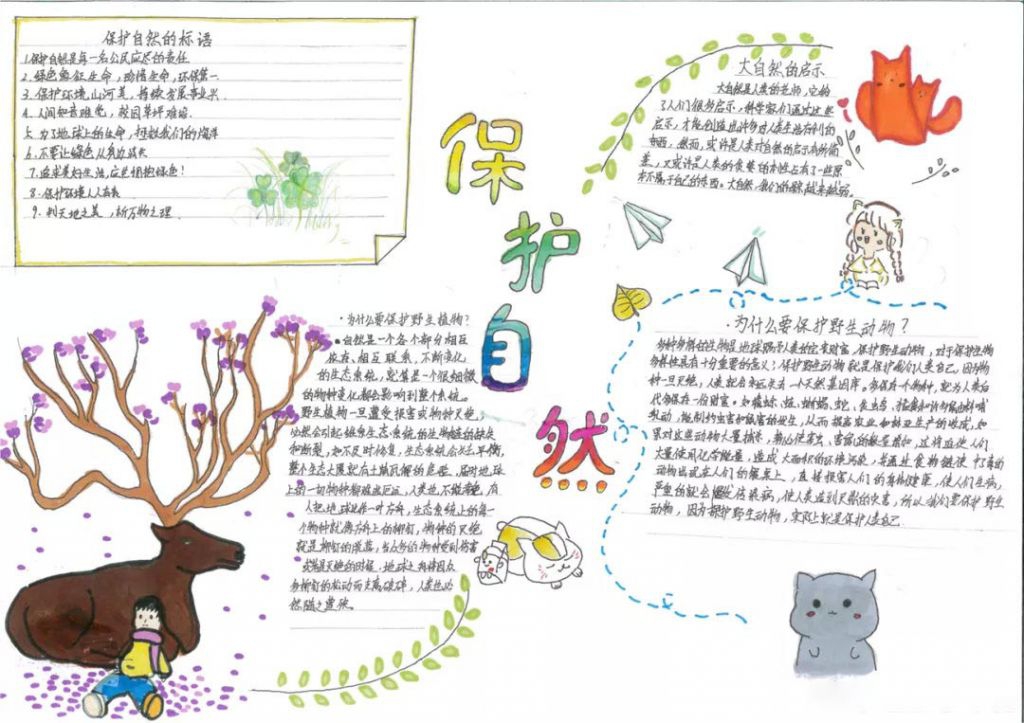 保护自然的标语
1.保护自然是每一名公民应尽的责任
2.绿色象征生命，珍惜生命，环保第一.
3.保护环境,山河美，持续发展事业兴.
4.人间知音难觅，校园草坪难培.
5.为了地球上的生命，拯救我们的海洋
6.不要让绿色从身边消失
7.追求美好生活,应先拥抱绿色！
8.保护环境人人有责
9.利天地之美，析万物之理.
保护自然
大自然的启示
大自然是人类的老师，它给
了人们很多启示，科学家们通过这些
启示，才能创造出许多对人类生活有利的
东西。然而，或许是人类对自然的启示有所
又或许是人类的贪婪的本性占有了一些原
本不属于自己的东西。大自然，我们的
·为什么要保护野生植物？
·自然是一个各个部分相互
依存、相互联系，不断变化
的生态系统，就算是一个很细微
的物种变化都会影响到整个系统。
野生植物一旦遭受损害或物种灭绝，
必然会引起维系生态系统的生物链的缺失
和断裂，如不及时修复，生态系统会失去平衡，
整个生态大厦就有土崩瓦解的危险。届时地球
上的一切物种都难逃厄运，人类也不能幸免。有
人把地球比作一叶方舟，生态系统上的每一
个物种就像方舟上的铆钉，物种的灭绝
就是铆钉的脱落，当众多的物种受到伤害
或濒临灭绝的时候，地球之舟将因众
多铆钉的松动而支离破碎，人类也必
然随之覆没。
·为什么要保护野生动物？
多种多样的生物是地球赐予人类的宝贵财富，保护野生动物，对于保护生物
多样性具有十分重要的意义；保护野生动物就是保护我们人类自己。因为物
种一旦灭绝，人类就会永远失去一个天然基因库。多保存一个物种，就为人类后
代多保存一份财富。如猫头、蛙、蜥蜴、蛇、食虫鸟、猛禽和许多食肉哺
乳动，能制约虫害和鼠害的发生，从而提高农业和林业生产的收成，如
果对这些动物大量捕杀，势必使害虫、害鼠的数量剧增，这将迫使人们
大量使用化学能量，造成大面积的环境污染，并通过食物链使有毒的
动物出现在人们的餐桌上，直接损害人们的身体健康，使人们生病，
严重的就会爆发传染病，使人类遭到灭顶的灾害，所以我们要保护野生
动物，因为保护野生动物，实际上就是保护人类自己.